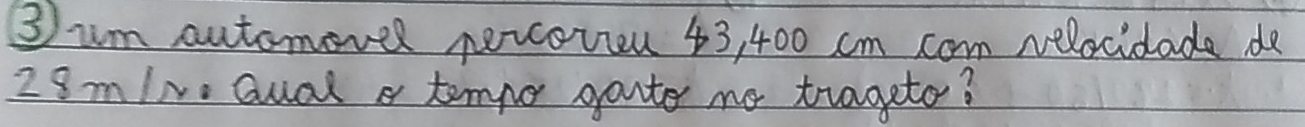 ③ um automovel percorreu 43,400 cm com velocidade de
28 m/s. Qual o tempo gasto no trageto?